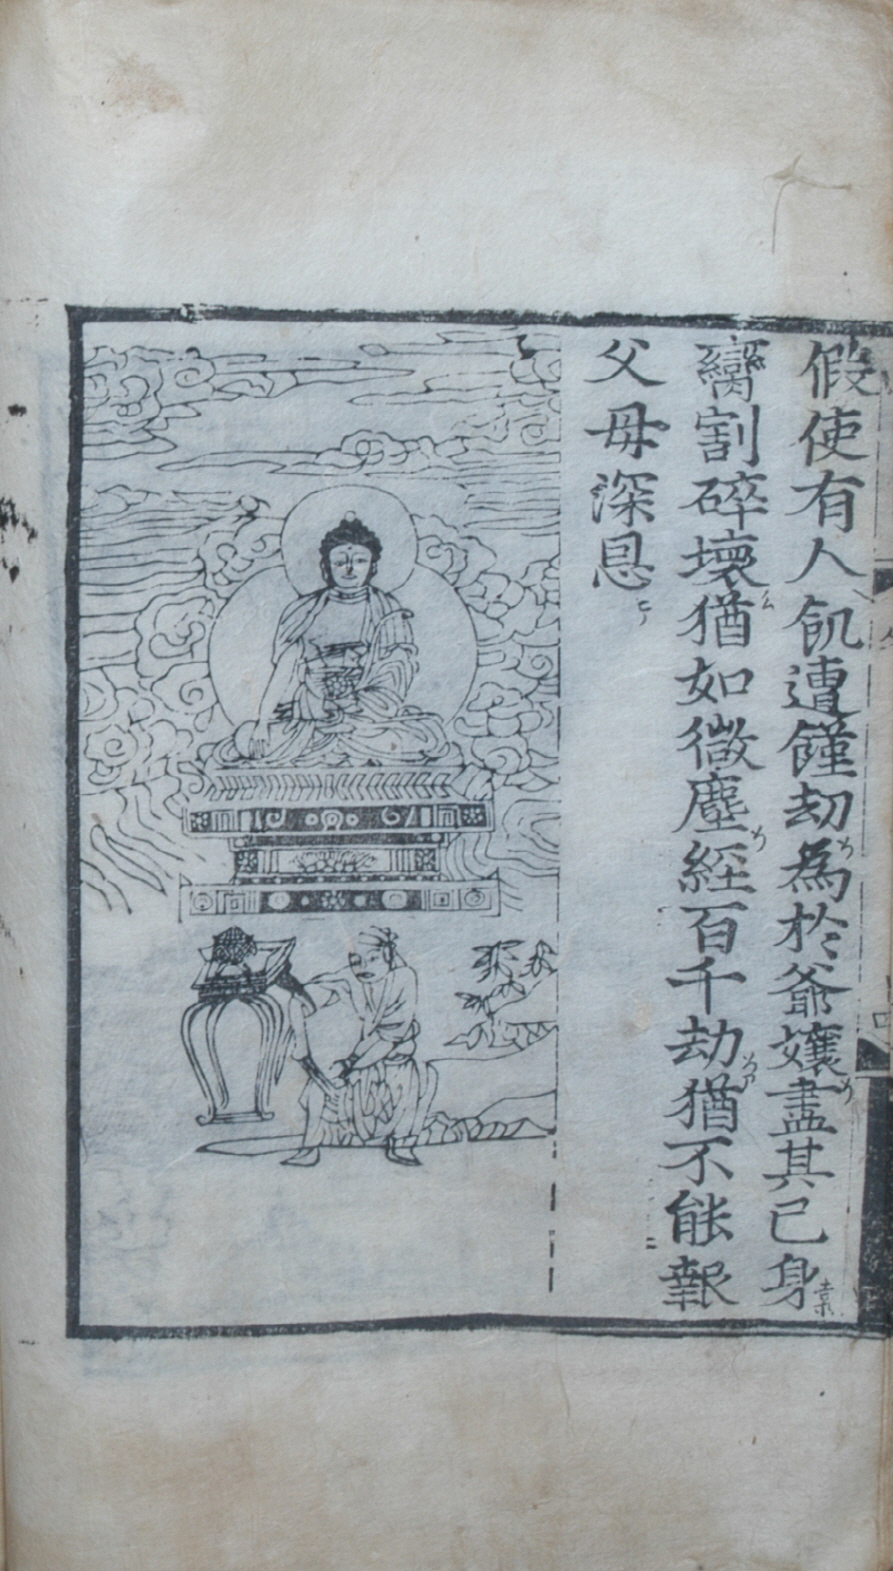 假使有人飢遭饉劫為於爺孃盡其己身
臠割碎壞猶如微塵經百千劫猶不能報
父母深恩